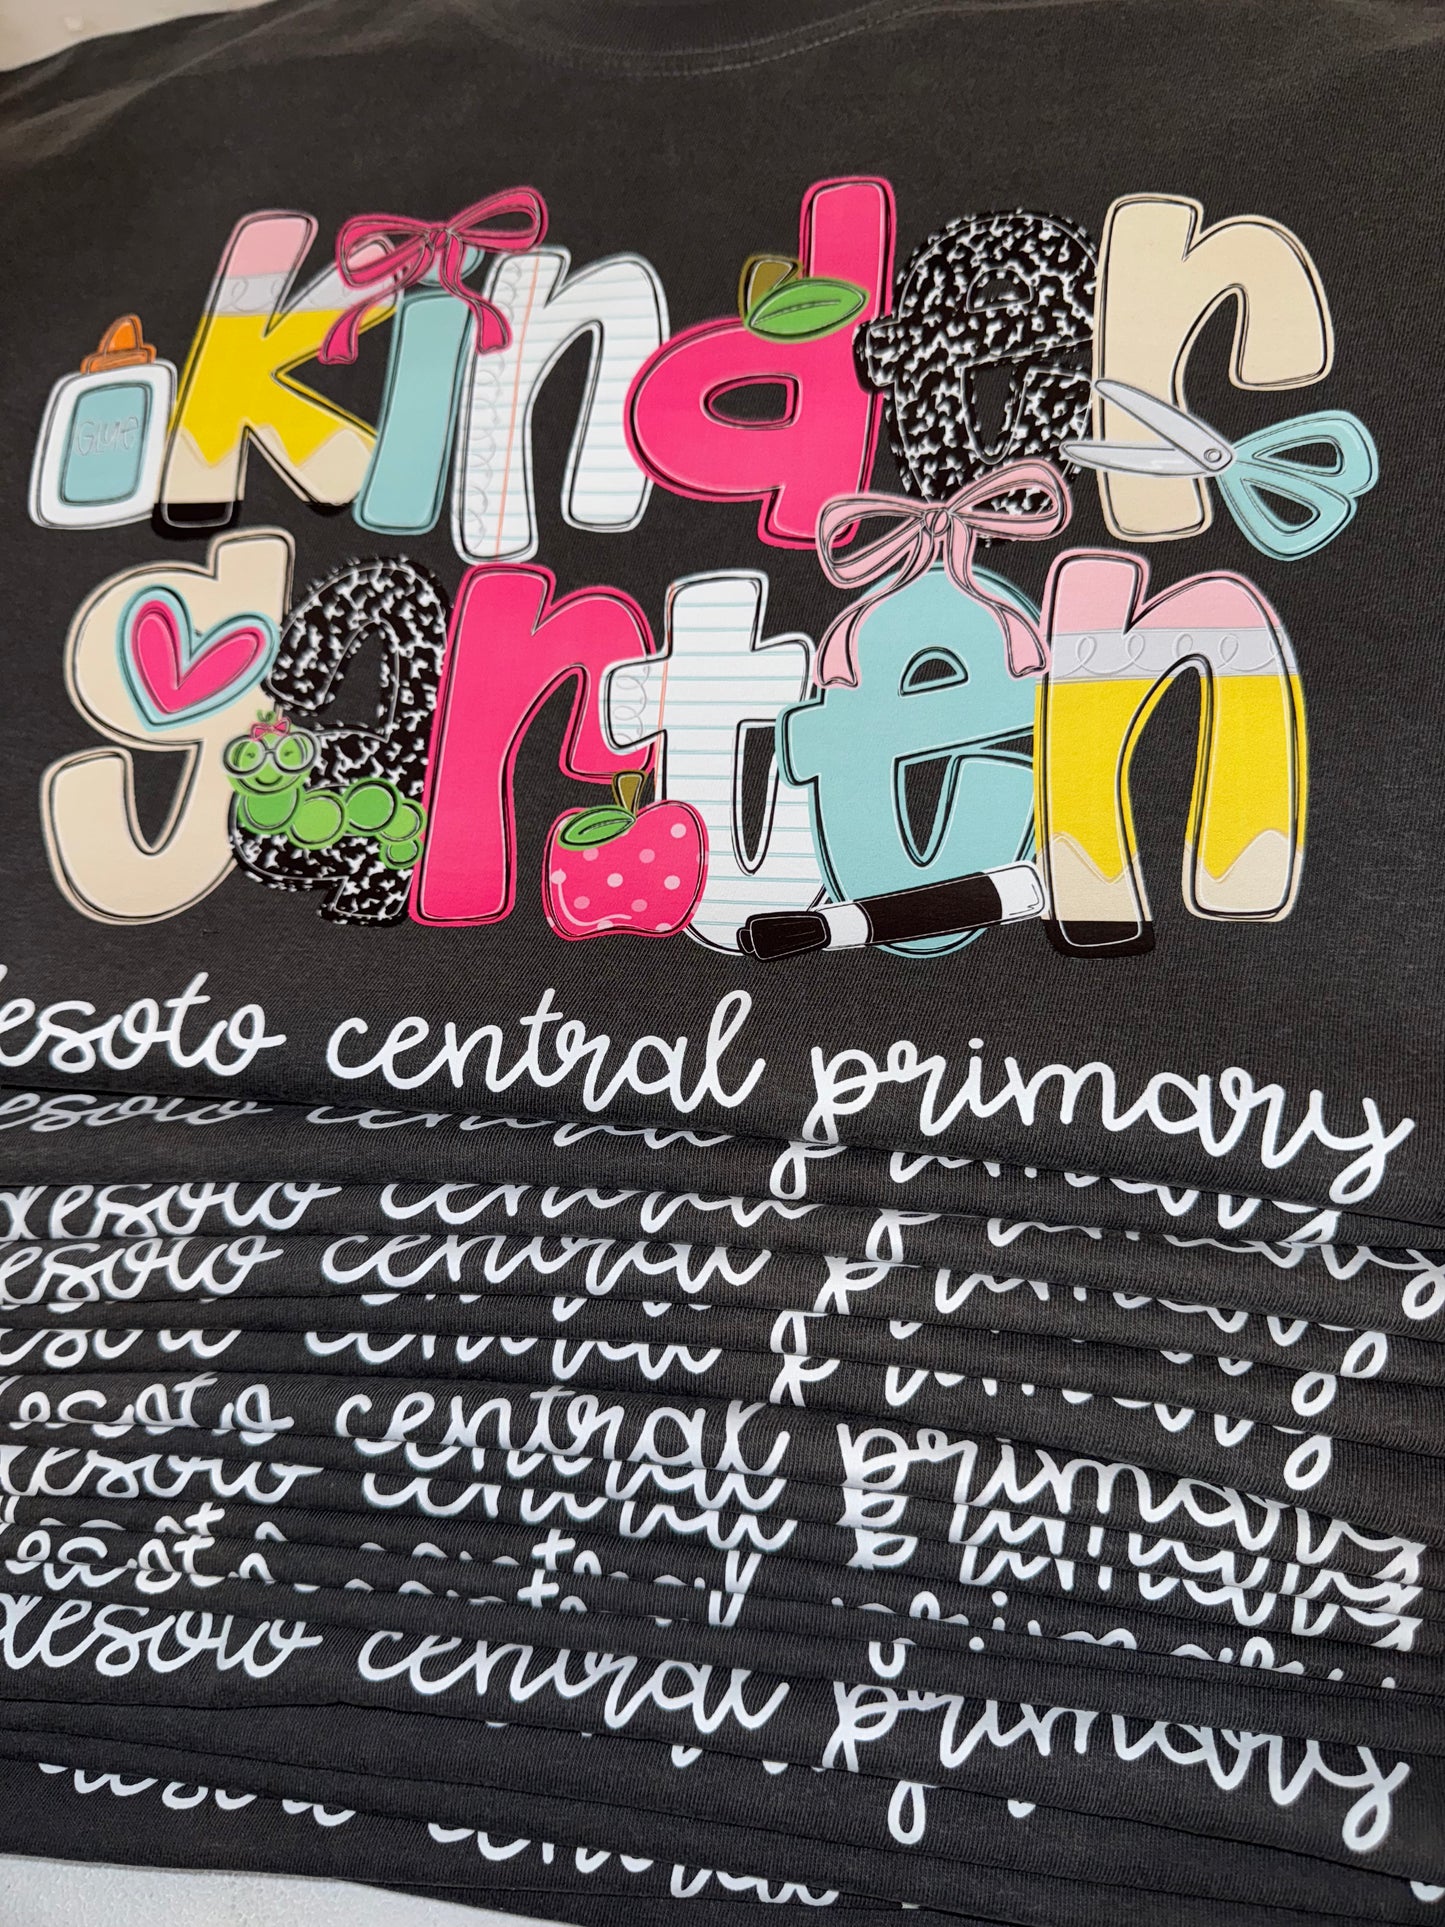 Glue
kinder
garten
desoto central primary
esoto central primary
desoto central primary
esoto central primary
esoto central primary
desoto central primary
desoto central primary
desoto central primary
desoto central primary
desoto central